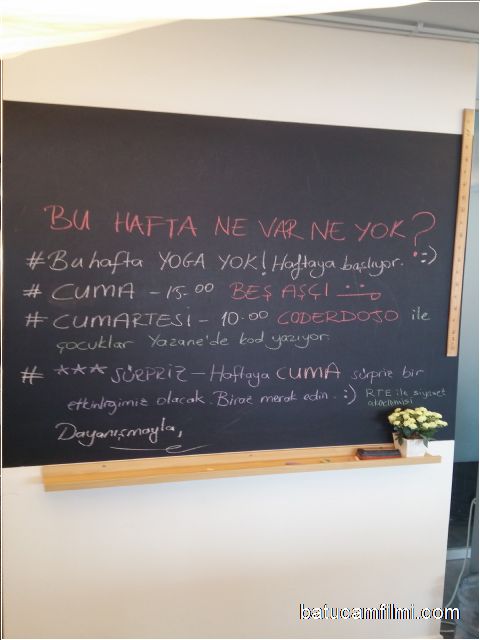 BU HAFTA NE VAR NE YOK?
# Bu hafta YOGA YOK! Haftaya başlıyor. :)
# CUMA - 15.00 BEŞ AŞÇI :)
# CUMARTESİ - 10.00 CODERDOJO ile
çocuklar Yazane'de kod yazıyor.
# *** SÜRPRİZ - Haftaya CUMA sürpriz bir
etkinliğimiz olacak. Biraz merak edin. :) RTE ile siyaset
akademisi
Dayanışmayla,
batucamfilmi.com